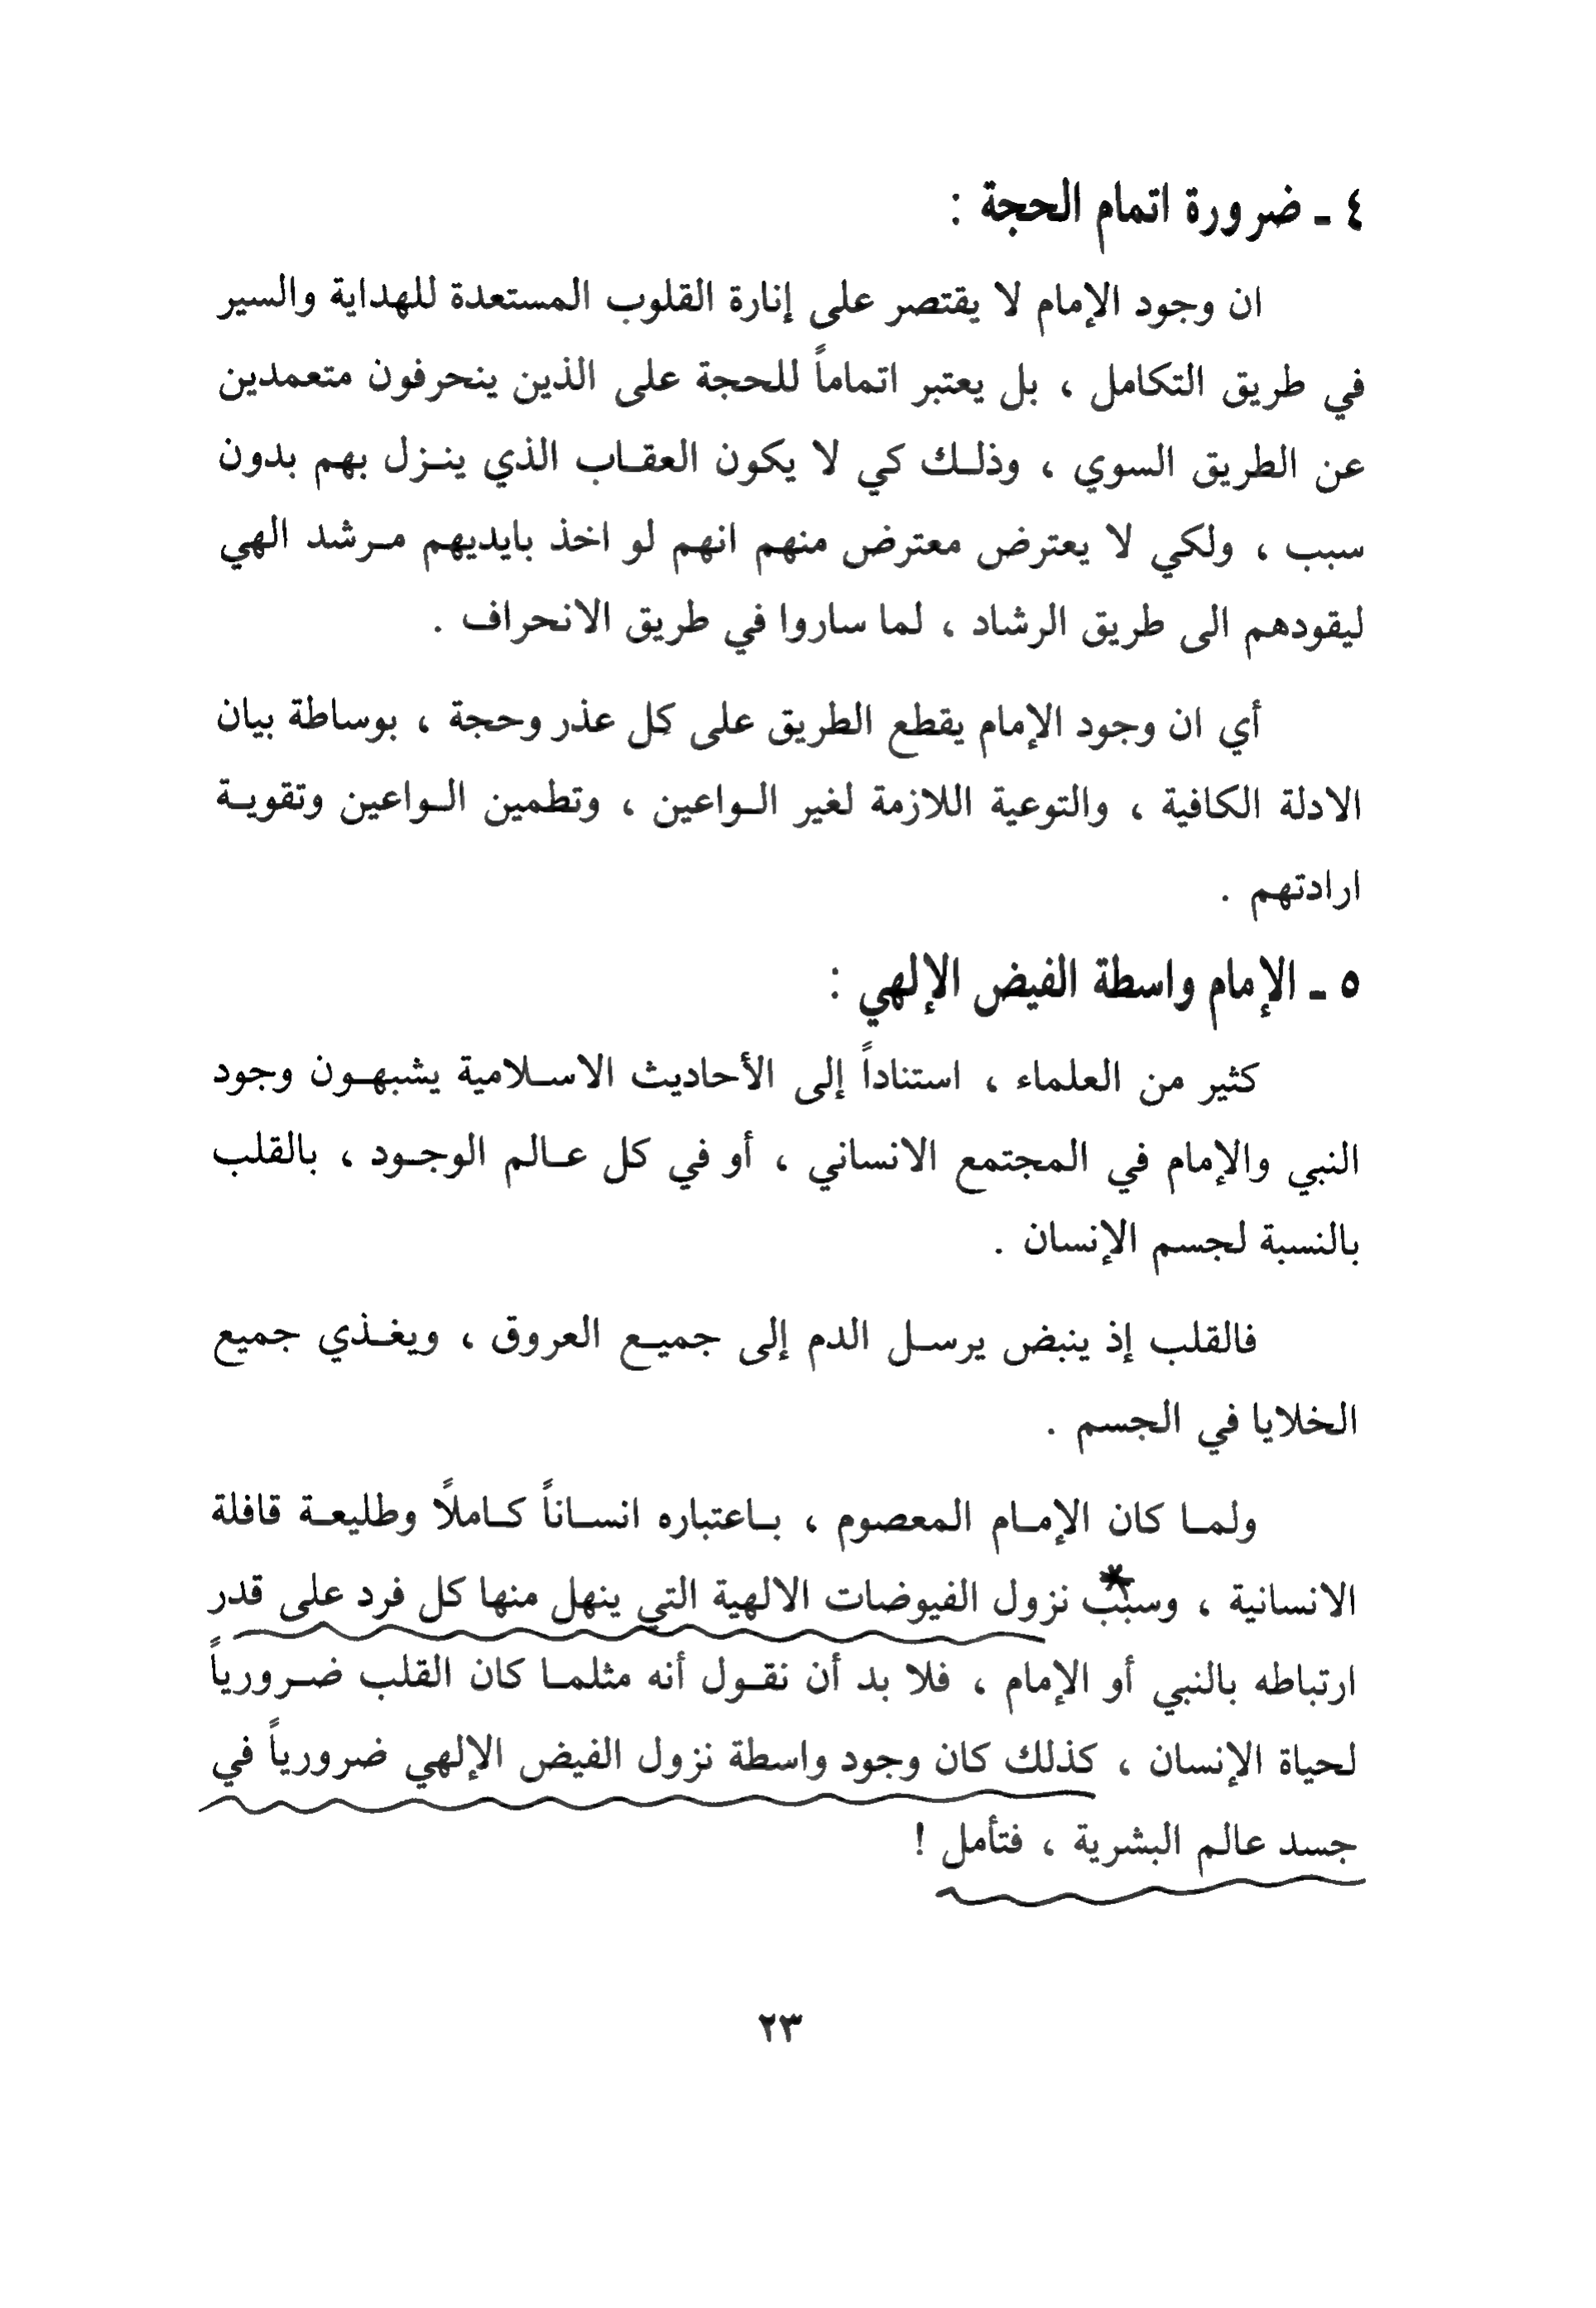 ٤ ـ ضرورة اتمام الحجة :
ان وجود الإمام لا يقتصر على إنارة القلوب المستعدة للهداية والسير
في طريق التكامل ، بل يعتبر اتماماً للحجة على الذين ينحرفون متعمدين
عن الطريق السوي ، وذلك كي لا يكون العقاب الذي ينزل بهم بدون
سبب ، ولكي لا يعترض معترض منهم انهم لو اخذ بايديهم مرشد الهي
ليقودهم الى طريق الرشاد ، لما ساروا في طريق الانحراف .
أي ان وجود الإمام يقطع الطريق على كل عذر وحجة ، بوساطة بيان
الادلة الكافية ، والتوعية اللازمة لغير الواعين ، وتطمين الواعين وتقوية
ارادتهم .
٥ ـ الإمام واسطة الفيض الإلهي :
كثير من العلماء ، استناداً إلى الأحاديث الاسلامية يشبهون وجود
النبي والإمام في المجتمع الانساني ، أو في كل عالم الوجود ، بالقلب
بالنسبة لجسم الإنسان .
فالقلب إذ ينبض يرسل الدم إلى جميع العروق ، ويغذي جميع
الخلايا في الجسم .
ولما كان الإمام المعصوم ، باعتباره انساناً كاملاً وطليعة قافلة
الانسانية ، وسبب نزول الفيوضات الالهية التي ينهل منها كل فرد على قدر
ارتباطه بالنبي أو الإمام ، فلا بد أن نقول أنه مثلما كان القلب ضرورياً
لحياة الإنسان ، كذلك كان وجود واسطة نزول الفيض الإلهي ضرورياً في
جسد عالم البشرية ، فتأمل !
٢٣